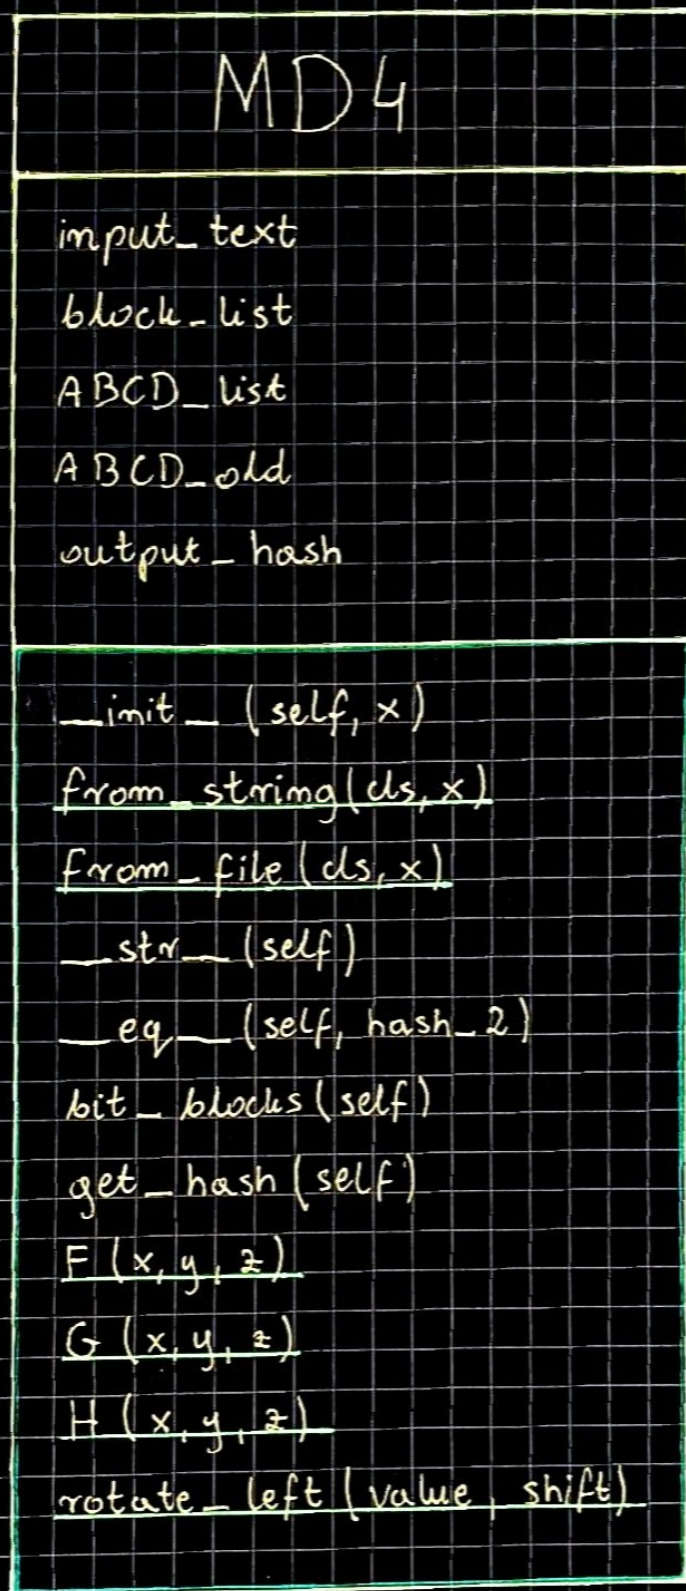 MD4
input_text
block_list
ABCD_list
ABCD_old
output_hash
__init__ (self, x)
from_string(cls, x)
from_file(cls, x)
__str__(self)
__eq__(self, hash_2)
bit_blocks(self)
get_hash(self)
F(x, y, z)
G(x, y, z)
H(x, y, z)
rotate_left(value, shift)